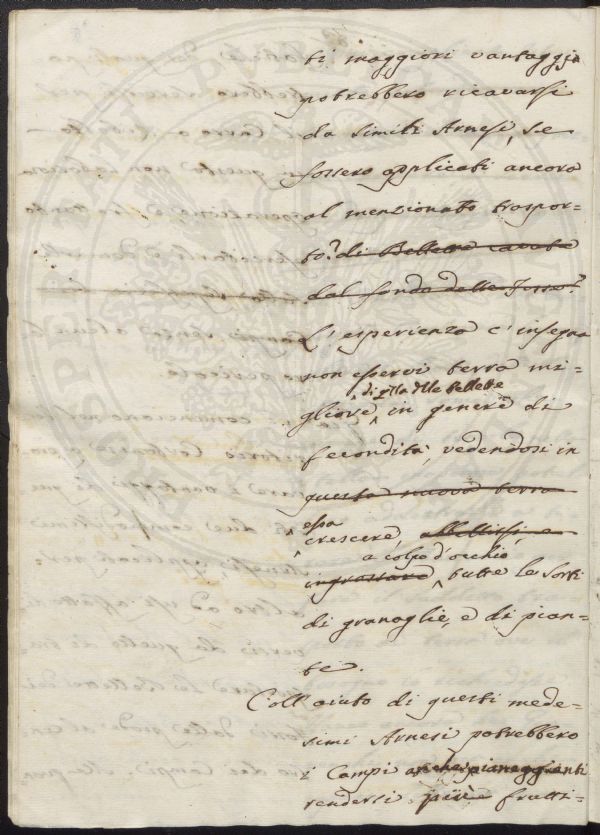 ti maggiori vantaggj
potrebbero ricavarsi
da simili Arnesi, se
fossero applicati ancora
al menzionato traspor-
to. di Bellette cavate
dal fondo delle Fosse.
L'esperienza c'insegna
non esservi terra mi-
di qlla dlle bellette
gliore in genere di
fecondità, vedendosi in
questa nuova terra
essa
crescere, abbellirsi, e
a colpo d'occhio
ingrossare, tutte le sorti
di granaglie, e di pian-
te.
Coll'aiuto di questi mede-
simi Arnesi potrebbero
i Campi anche pianeggianti
rendersi più frutti-